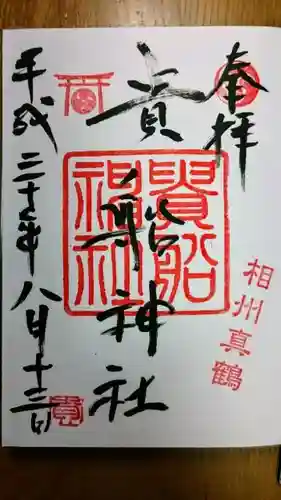 奉拝
相州真鶴
貴船神社
貴船
平成三十年八月十三日